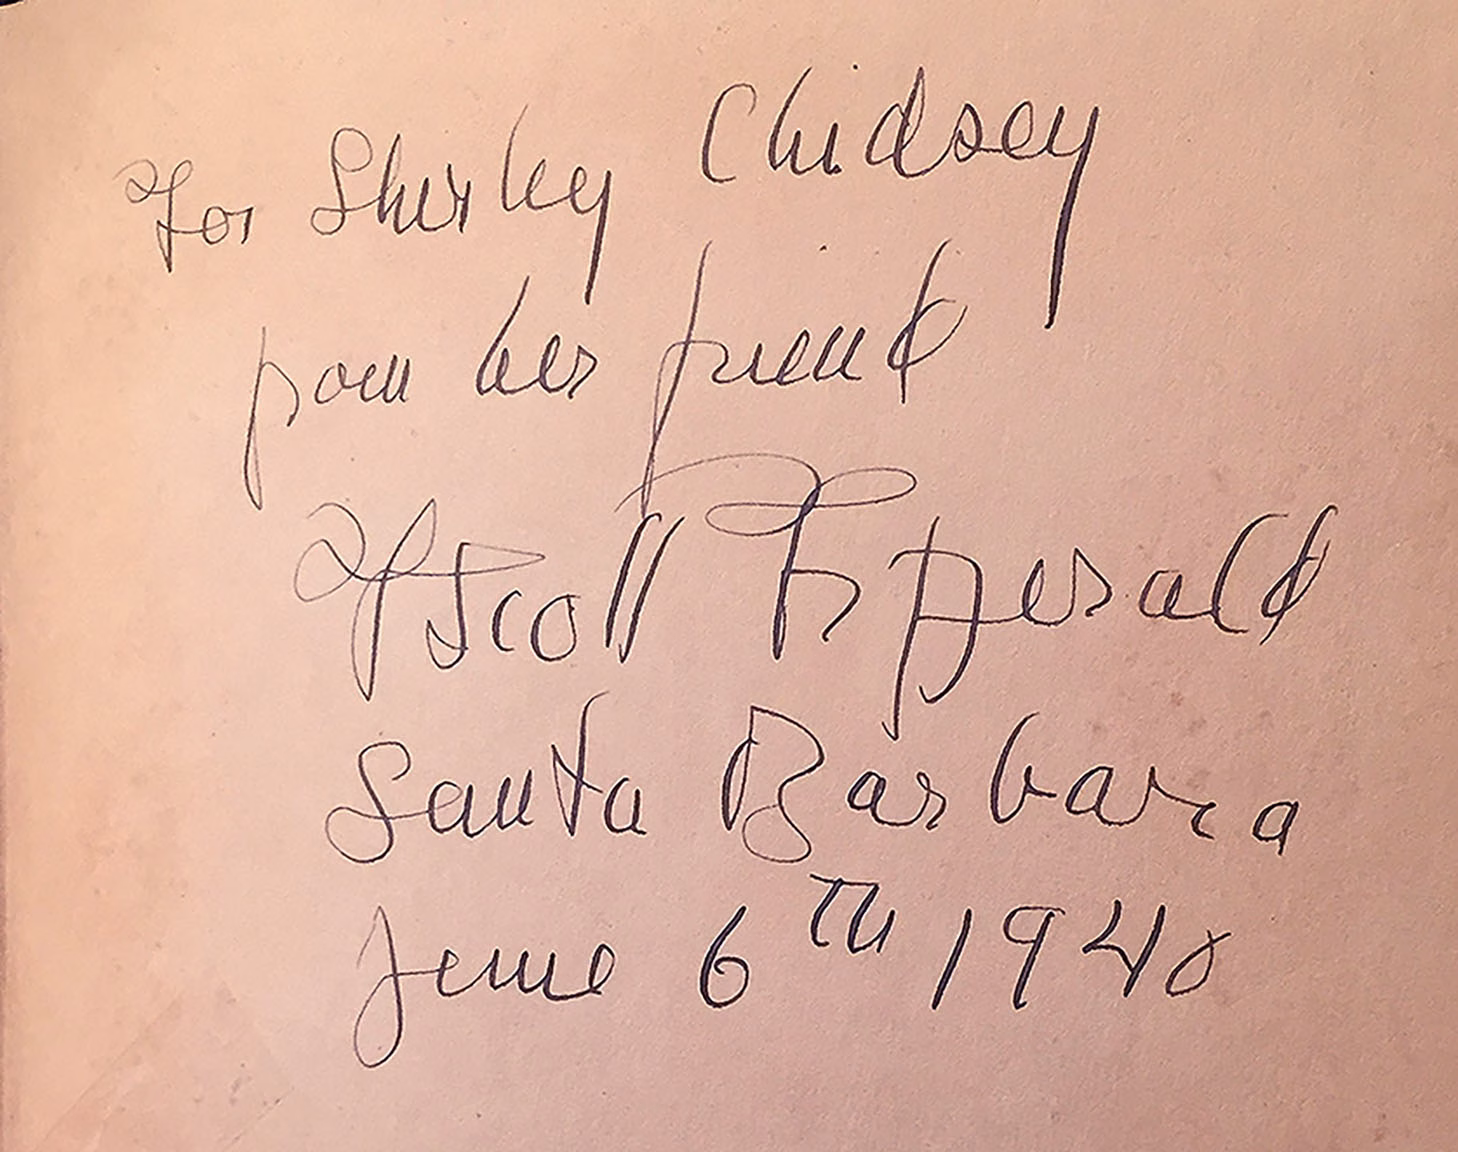 For Shirley Chidsey
from her friend
F Scott Fitzgerald
Santa Barbara
June 6th 1940